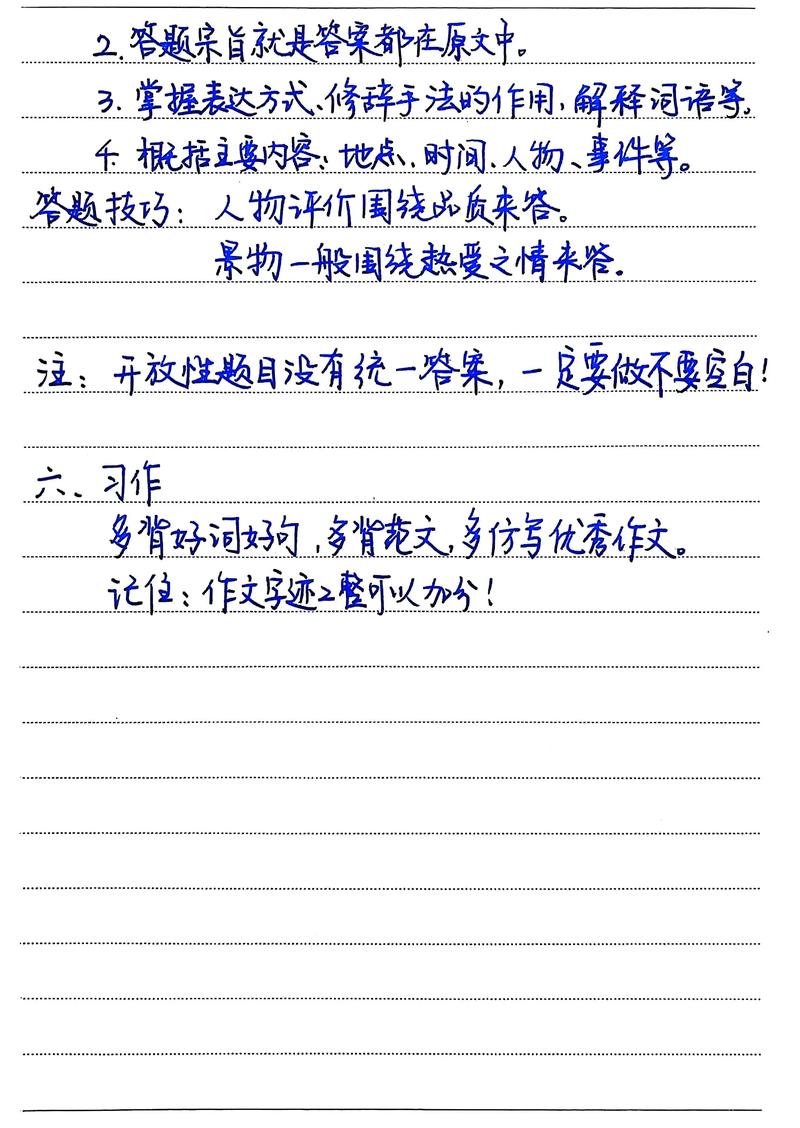 2. 答题宗旨就是答案都在原文中。
3. 掌握表达方式、修辞手法的作用,解释词语等。
4. 概括主要内容:地点、时间、人物、事件等。
答题技巧: 人物评价围绕品质来答。
景物一般围绕热爱之情来答。
注: 开放性题目没有统一答案,一定要做不要空白!
六、习作
多背好词好句,多背范文,多仿写优秀作文。
记住:作文字迹工整可以加分!